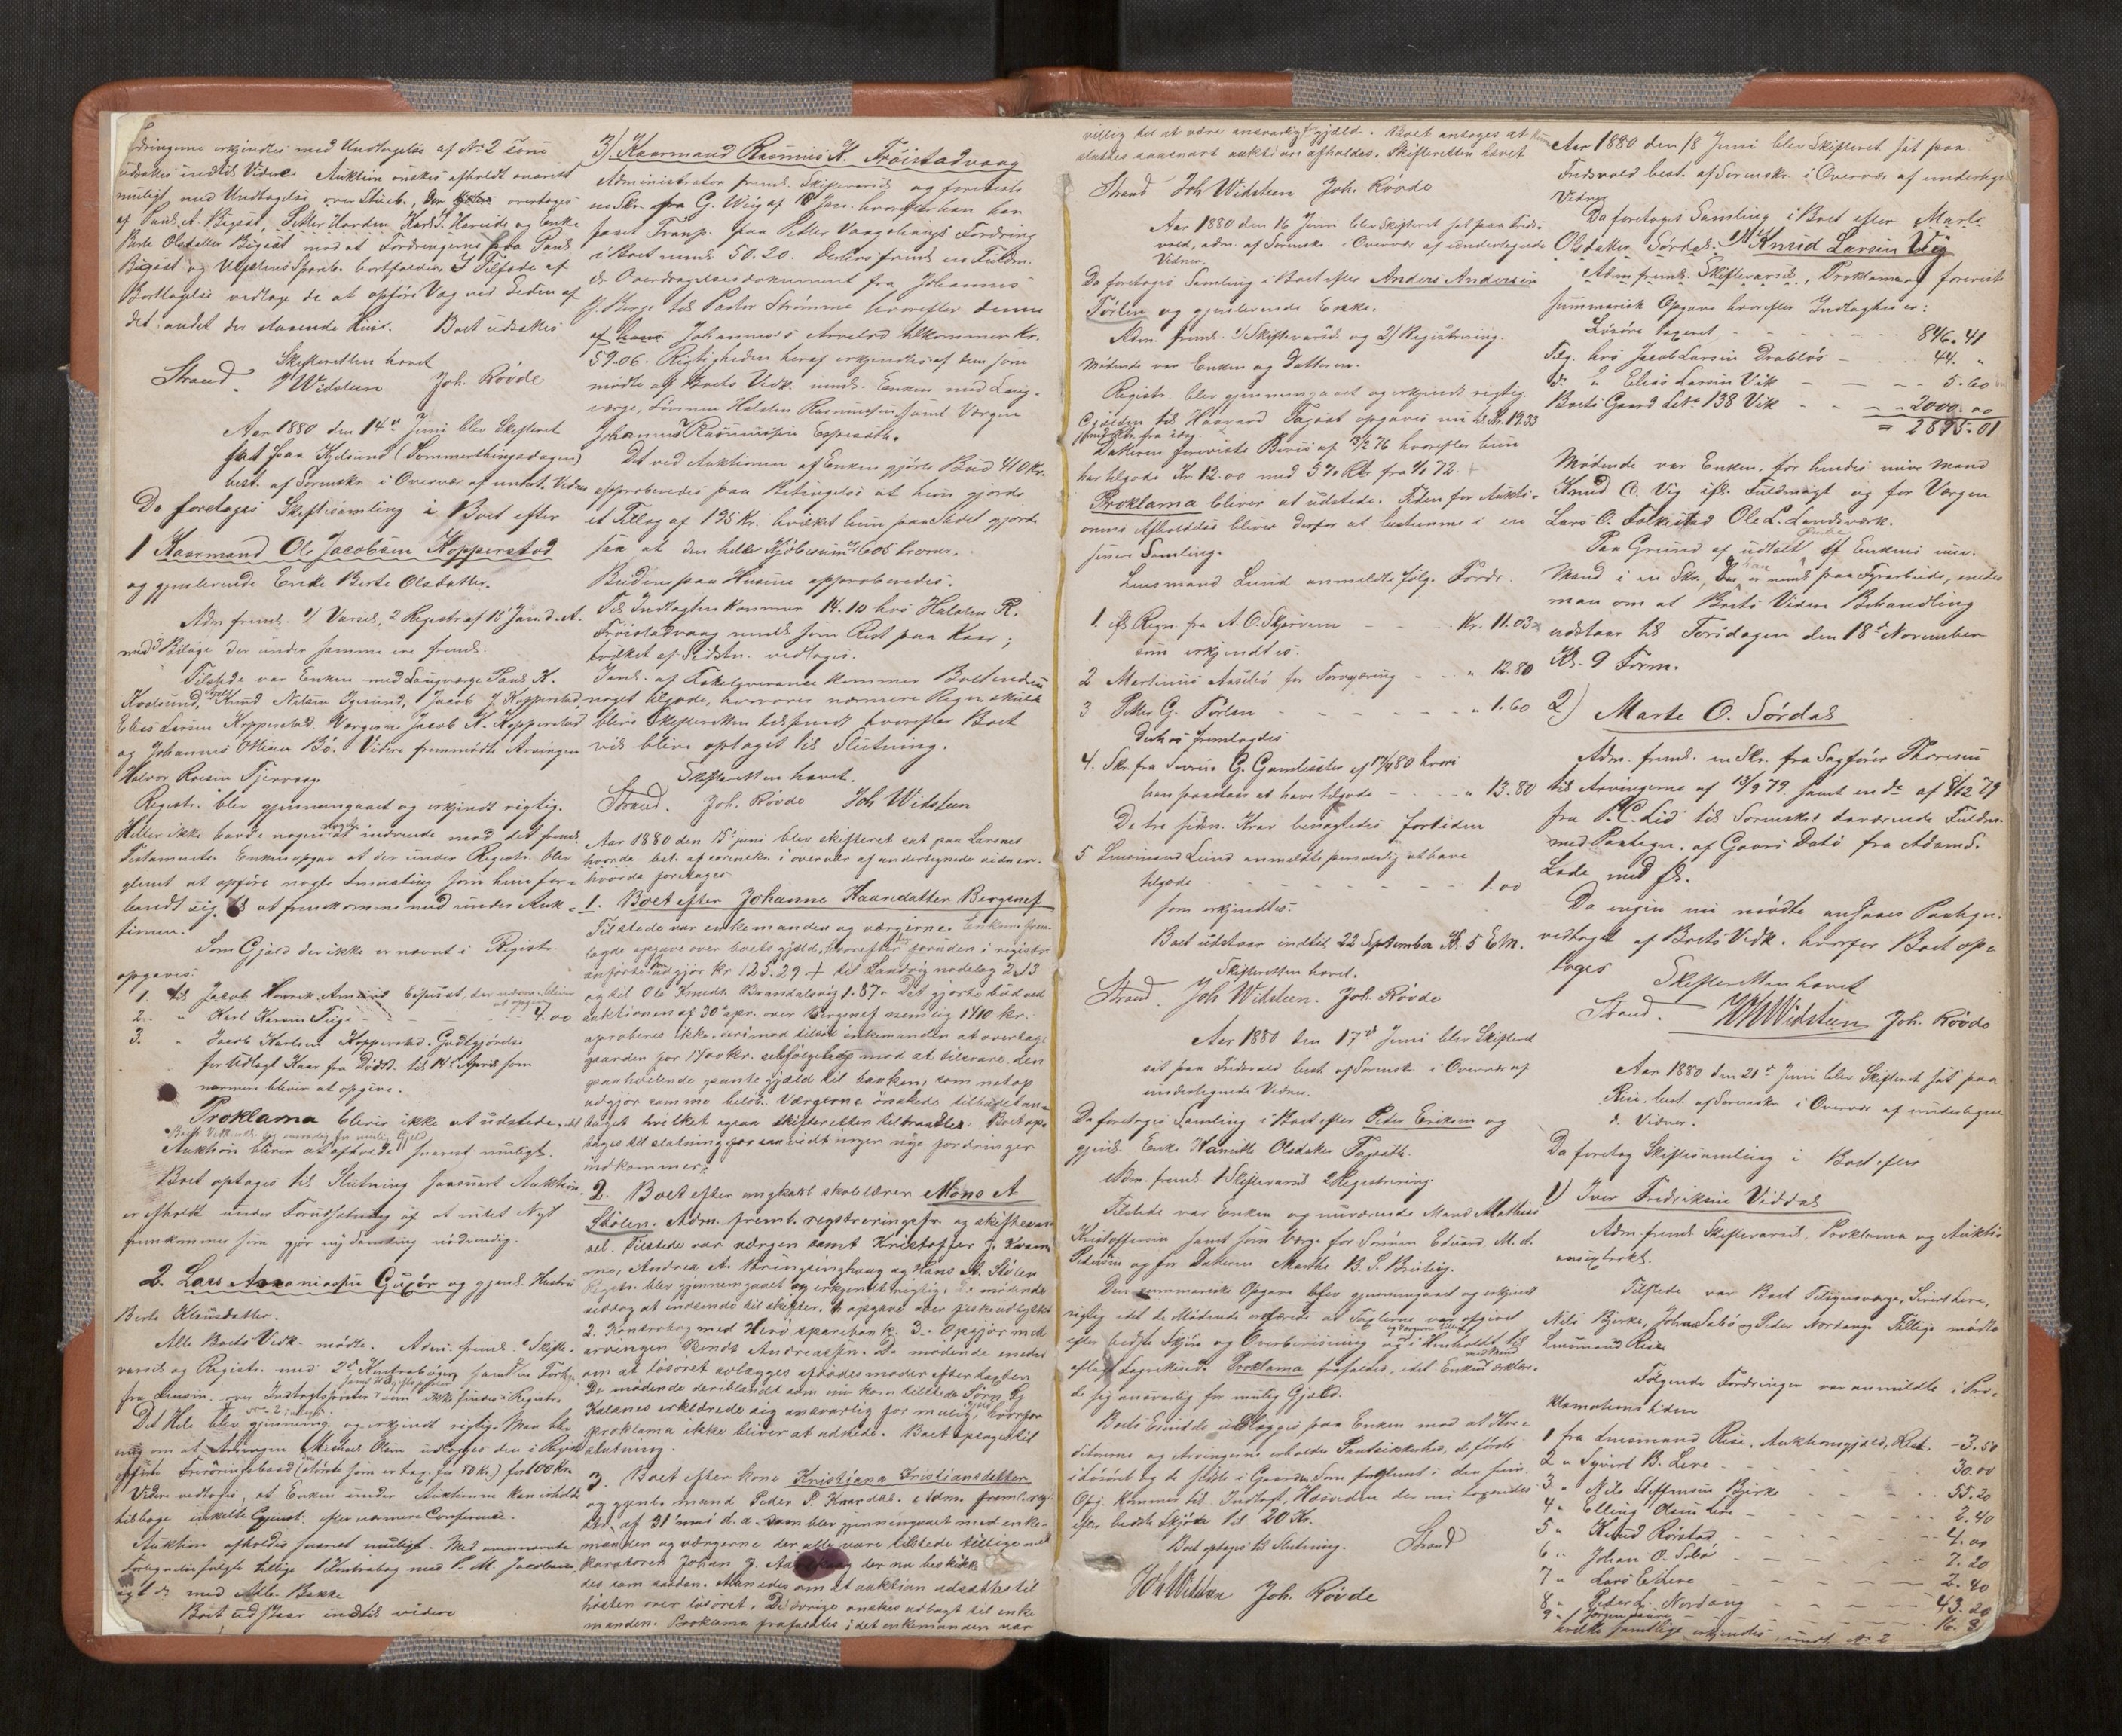 erkjendtes med Undtagelse af No 2 som
udsættes indtil Videre. Auktion ønskes afholdt snarest
muligt med Undtagelse over Stueb., der overtages
af Pauls A. Bigset, Petter Hareide og Enke
Berte Olsdatter Bigset mod at Fordringerne fra Pauls
Bigset og bortfalder. I Tilfælde af
Borttagelse vedtoge de at opføre Væg ved Enden af
det andet der staaende Huse. Boet udsættes
Skifteretten hævet
Strand. J Widsteen Joh. Røvde
Aar 1880 den 14de Juni blev Skifteret
sat paa Kjelsund (Sommerthingsdagen)
best. af Sorenskr. i Overvær af undert. Vidner
Da foretoges Skiftesamling i Boet efter
1 Kaarmand Ole Jacobsen Kopperstad
og gjenlevende Enke Berte Olsdatter.
Adm. fremл. 1/ Varsel, 2 Registr af 15 Jan. d. A.
med 3 Bilage der under samme ere freml.
Tilstede var Enken med Laugværge Pauls K.
Knud Nilsen Igesund, Jacob J. Kopperstad,
Elias Larsen Kopperstad. Værgerne Jacob K. Kopperstad
og Johannes Ottesen Bø. Videre fremmødte Arvingen
Halvor Tjervaag
Registr. blev gjennemgaaet og erkjendt rigtig.
Heller ikke havde nogen noget at indvende mod det freml.
Testamente. Enken opgav at der under Registr. blev
glemt at opføre nogle som hun for-
bandt sig til at fremkomme med under Auk-
tionen.
Som Gjæld der ikke er nævnt i Registr.
opgaves:
1. til Jacob Henrik Eiksund, der nærmere bliver at opgives
2. " Karl 4.00
3. " Jacob Karlsen Kopperstad. Godtgjørelse
for Udlagt Kaar fra Dødsd. til 14de April som
nærmere bliver at opgive.
Proklama bliver ikke at udstede, da
Auktion bliver at afholde snarest muligt.
Boet optages til Slutning saasnart Auktion
er afholdt under Forudsætning af at intet Nyt
fremkommer som gjør ny Samling nødvendig.
2. Lars Ananiassen Gurskø og gjenl. Hustru
Berte Klausdatter.
Alle Boets Vedk. mødte. Adm. freml. Skifte-
varsel og Registr. med 2de Kontrabøger samt en Fortegn.
fra Lensm. over Indtægtsposter som ikke findes i Registr.
Det Hele blev gjennemg. og erkjendt rigtig. Man blev
enig om at Arvingen Michael Olsen udlægges den i Registr.
opførte Færøringsbaad (største som er tax. for 50 Kr.) for 100 Kr.
Videre vedtoges, at Enken under Auktionen kan erholde
tilbage enkelte Gjenst. efter nærmere Conference.
Auktion afholdes snarest muligt. Med
fulgte tillige 1 Kontrabog med P. M. Jacobsen
og 1 do med Adle. Bakke
Boet udstaar indtil videre
3) Kaarmand Rasmus K. Frøistadvaag
Administrator freml. Skiftevarsel og foreviste
en Skr. fra G. Wiig af 10 Jan. hvorefter han har
faaet Transp. paa Petter Vaagehaugs Fordring
i Boet med 50.20. Derhos freml. en Fuldm.
& Overdragelsesdokument fra Johannes
J. Berge til Pastor Strømme hvorefter denne
af Johannes's Arvelod tilkommer Kr.
59.06. Rigtigheden heraf erkjendtes af dem som
mødte af Boets Vedk. nemlig Enken med Laug-
værge, Sønnen Halsten Rasmussen samt Værgen
Johannes Rasmussen Espesæth.
Det ved Auktionen af Enken gjorte Bud 410 Kr.
approberedes paa Betingelse at hun gjorde
et Tillæg af 195 Kr. hvilket hun paa Stedet gjorde
saa at den hele Kjøbesum er 605 Kroner.
Budene paa Husene approberedes.
Til Indtægten kommer 14.10 hos Halsten R.
Frøistadvaag som Rest paa Kaar;
hvilket af Sidstn. vedtoges.
I Anl. af kommer Boet endnu
noget tilgode, hvorover nærmere Regn. skulde
blive Skifteretten tilsendt hvorefter Boet
vil blive optaget til Slutning.
Skifteretten hævet.
Strand. Joh. Røvde Joh Widsteen
Aar 1880 den 15de juni blev skifteret sat paa Larsnes
hvorda best. af sorenskr. i overvær af undertegnede vidner.
hvorda foretages
1. Boet efter Johanne Hansdatter Bergsnes
Tilstede var enkemanden og værgerne. Enkem. frem-
lagde opgave over boets gjæld, hvorefter foruden i registr.
anførte udgjør kr 125.29 + til Landvig nodelag 2.13
og til Ole Knudt. Brandalsvig 1.87. Det gjorte bud ved
auktionen af 30te apr. over Bergsnes nemlig 1410 kr.
aproberes ikke. derimod tillod enkemanden at overtage
gaarden for 1700 kr. selvfølgelig mod at tilsvare den
paahvilende pantegjæld til banken, som netop
udgjør samme beløb. Værgerne ønskede tilbudet an-
taget hvilket ogsaa skifteretten tiltraadte. Boet op-
tages til slutning for saavidt ingen nye fordringer
indkommer.
2. Boet efter ungkarl skolelærer Møns A
Stølen. Adm. freml. registreringsfr. og skiftevar-
sel. Tilstede var værgen samt Kristoffer J. Kvam-
me, Andrea A. og Hans A. Stølen
Registr. blev gjennemgaaet og erkjendt rigtig. De mødende
vedtog at indsende til skifter. 1. opgave over fiskeudbyttet
2. Kontrabog med Herø sparebank. 3. Opgjør med
arvingen Bendt Andreassn. De mødende enedes
om at løsøret avlægges afdødes moder efter taxten
De mødende deriblandt som nu kom tilstede Søren G
Kalanes erklærede sig ansvarlig for mulig gjæld hvorfor
proklama ikke bliver at udstede. Boet optages til
slutning.
3. Boet efter kone Kristiana Kristiansdatter
og gjenl. mand Peder P. Knardal. Adm. freml. regi-
str. af 31 mai d. a. som blev gjennemgaaet med enke-
manden og værgerne der alle vare tilstede tillige med
kuratoren Johan J. der nu beskikke-
des som saadan. Man enedes om at auktion udsættes til
høsten over løsøret. De øvrige ønskes udlagt til enke-
manden. Proklama frafaldtes idet enkemanden var
villig til at være ansvarlig f. gjæld. Boet antages at kunne
sluttes saasnart auktion afholdes. Skifteretten hævet
Strand Joh Widsteen Joh. Røvde
Aar 1880 den 16 Juni blev Skifteret sat paa Frids-
vold, adm. af Sorenskr. i Overvær af undertegnede
Vidner.
Da foretoges Samling i Boet efter Anders Andersen
Tørlen og gjenlevende Enke.
Adm. freml. 1/ Skiftevarsel og 2/ Registrering.
Mødende var Enken og Datteren.
Registr. blev gjennemgaaet og erkjendt rigtig.
Gjælden til Haavard Fagset opgaves nu til Kr. 19.33
Datteren foreviste Bevis af 13/2 76 hvorefter hun
har tilgode Kr 12.00 med 5 % Rtr fra 1/1 72.
Proklama bliver at udstede. Tiden for Aukti-
onens Afholdelse bliver derfor at bestemme i en
senere Samling.
Lensmand Lund anmeldte følg. Fordr.
1. ifl. Regn. fra A. O. Skjerven Kr. 11.03
som erkjendtes.
2 Martinus Aasels for Torvgjæring " 12.80
3 Petter G. Tørlen " 1.60
derhos fremlagdes
4. Skr. fra Severin G. Gamlesæter af 14/4 80 hvori
han paastaar at have tilgode " 13.80
De tre sidstn. Krav benægtedes for tiden
5 Lensmand Lund anmeldte personlig at have
tilgode 1.00
som erkjendtes.
Boet udstaar indtil 22 September Kl. 5 E M.
Skifteretten hævet.
Strand. Joh Widsteen. Joh. Røvde
Aar 1880 den 17de Juni blev Skifteret
sat paa Fridsvold best. af Sorenskr. i Overvær af
undertegnede Vidner.
Da foretoges Samling i Boet efter Peder Eriksen og
gjenl. Enke Hansine Olsdatter Fagsæth.
Adm. freml. 1 Skiftevarsel 2 Registrering.
Tilstede var Enken og nuværende Mand Mathias
Kristoffersen samt som Værge for Sønnen Eduard M. A.
Pedersen og for Datteren Marthe B. S. Breivig.
Den summariske Opgave blev gjennemgaaet og erkjendt
rigtig idet de Mødende erklærede at Tingene var opgivet
efter bedste Skjøn og Overbevisning og i Henhold til
aflagt Proklama frafaldtes, idet Enkens Mand erklære-
de sig ansvarlig for mulig Gjæld.
Boets Eiendele udlægges paa Enken mod at Kre-
ditorerne og Arvingerne erholder Pantsikkerhed, de første
i Løsøret og de sidste i Gaarden. Som forglemt i den sum.
Opg. kommer til Indtægt, Høsæden der nu taxeredes
efter bedste Skjøn til 20 Kr.
Boet optages til Slutning. Strand
Joh Widsteen Joh. Røvde
Aar 1880 den 18 Juni blev Skifteret sat paa
Fridsvold best. af Sorenskr. i Overvær af undertegn.
Vidner
Da foretoges Samling i Boet efter Marte
Olsdatter Sørdal. 1) Knud Larsen Vig
Adm. freml. Skiftevarsel, Proklama og foreviste
summarisk Opgave hvorefter Indtægten er:
Løsøre taxeret 846.41
Tilg. hos Jacob Larsen Drabløs 44. "
do. " Elias Larsen Vik 5.60
Boets Gaard Litr 138 Vik 2000.00
= 2895.01
Mødende var Enken, for hendes nuv. Mand
Knud O. Vig ifl. Fuldmagt og for Værgen
Lars O. Folkestad Ole L. Landsværk.
Paa Grund af udtalt Ønske af Enkens nuv.
Mand i en Skr., da han er paa Fyrarbeide, enedes
man om at Boets Videre Behandling
udstaar til Torsdagen den 18de November
Kl. 9 Form.
2) Marte O. Sørdal
Adm. freml. en Skr. fra Sagfører Thoresen
til Arvingerne af 13/9 79 samt en do af 8/12 79
fra P. C. Lid til Sorenskr.s daværende Fuldm.
med Paategn. af Gaars Dato fra Adams.
Lade med fl.
Da ingen nu mødte ansaaes Paategn.
vedtaget af Boets Vedk. hvorfor Boet op-
tages
Skifteretten hævet
Strand. Joh Widsteen Joh. Røvde
Aar 1880 den 21de Juni blev Skifteret sat paa
Rise, best. af Sorenskr. i Overvær af undertegne-
de Vidner.
Da foretog Skiftesamling i Boet efter
1) Iver Fredriksen Viddal
Adm. freml. Skiftevarsel, Proklama og Aukti-
onsextrakt.
Tilstede var Boets Tilsynsværge, Sivert Lere,
Nils Bjerke, Johan Sebø og Peder Nordang. Tillige mødte
Lensmand Rise
Følgende Fordringer var anmeldte i Pro-
klamationstiden
1 fra Lensmand Rise, Auktionsgjæld, Rest. - 3.50
2 " Syvert B. Lere 30.00
3 " Nils Steffensen Bjerke 55.20
4 " Elling Olsen Lere 2.40
5 " Knud Rørstad 4.00
6 " Johan O. Sebø 7.20
7 " Lars E. Lere 2.40
8 " Peder L. Nordang 43.20
9 " Jørgen 16.
hvilke samtlige erkjendtes, undt. No 2